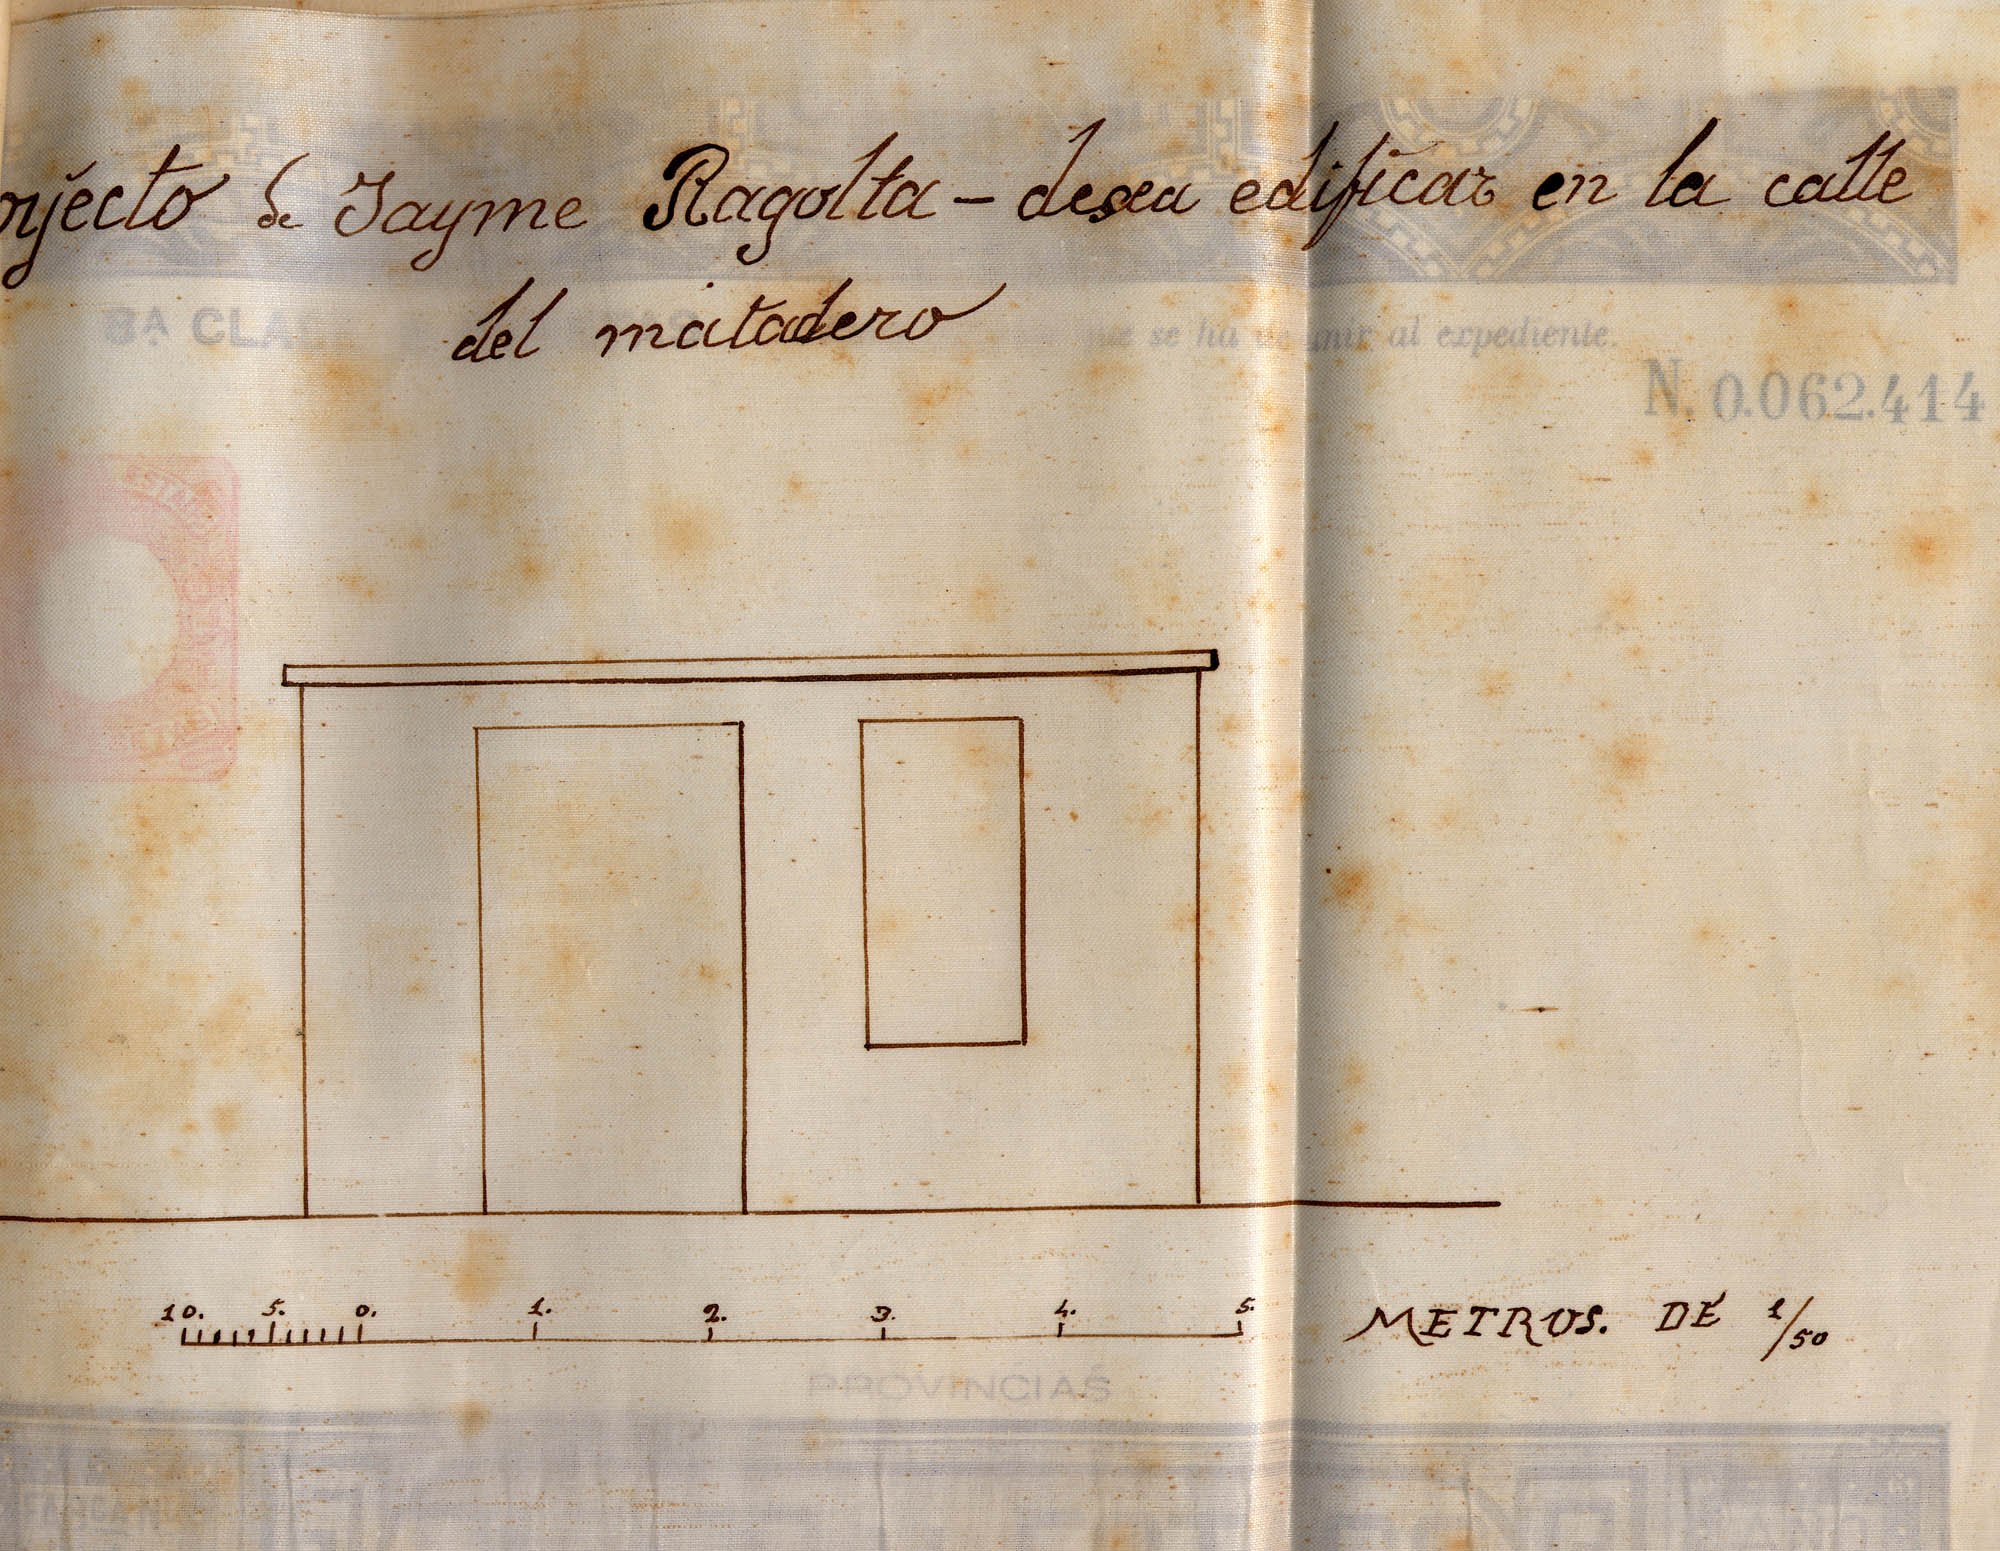 oyecto de Jayme Ragolta - desea edificar en la calle
del matadero
8ª CLA
se ha de unir al expediente.
N. 0.062.414
10. 5. 0. 1. 2. 3. 4. 5. METROS. DE 1/50
PROVINCIAS